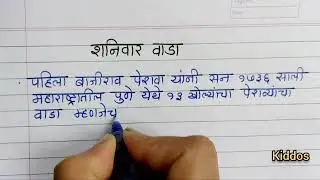 शनिवार वाडा
• पहिला बाजीराव पेशवा यांनी सन १७३६ साली
महाराष्ट्रातील पुणे येथे १३ खोल्यांचा पेशव्यांचा
वाडा म्हणजेच
Kiddos